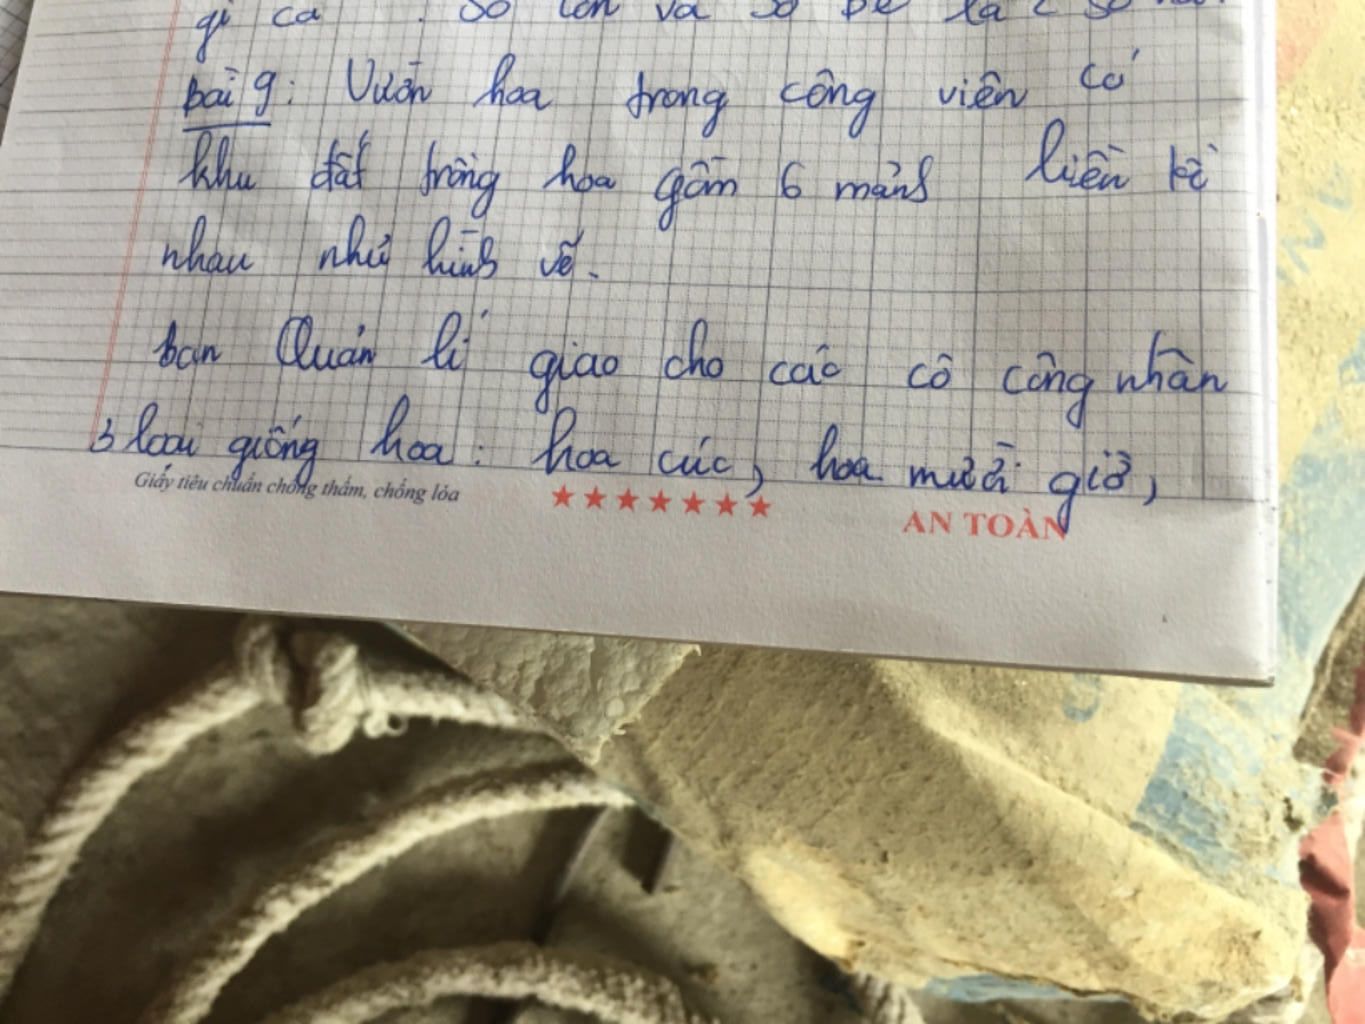 gì cả. Số lớn và số bé là 2 số
bài 9: Vườn hoa trong công viên có
khu đất trồng hoa gồm 6 mảnh liền kề
nhau như hình vẽ.
ban Quản lí giao cho các cô công nhân
3 loại giống hoa: hoa cúc, hoa mười giờ,
Giấy tiêu chuẩn chống thấm, chống lóa
AN TOÀN